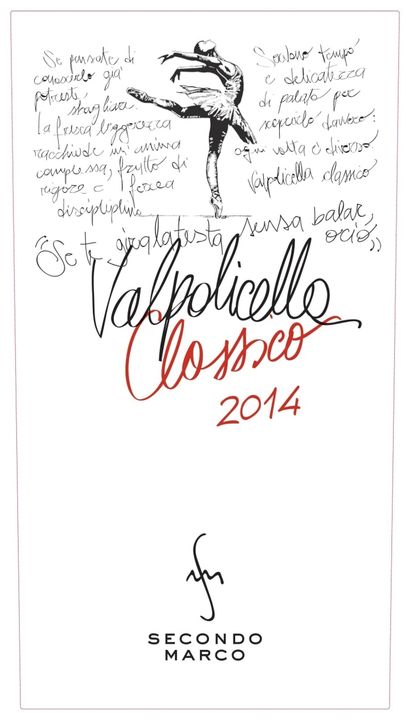 Se pensate di
conoscerlo già
potreste
sbagliare.
La fresca leggerezza
racchiude un'anima
complessa, frutto di
rigore e ferrea
Servono tempo
e delicatezza
di palato per
davvero:
ogni volta è diverso
Valpolicella classico
"Se te gira la testa sensa balar,
ocio"
Valpolicella
Classico
2014
SECONDO
MARCO